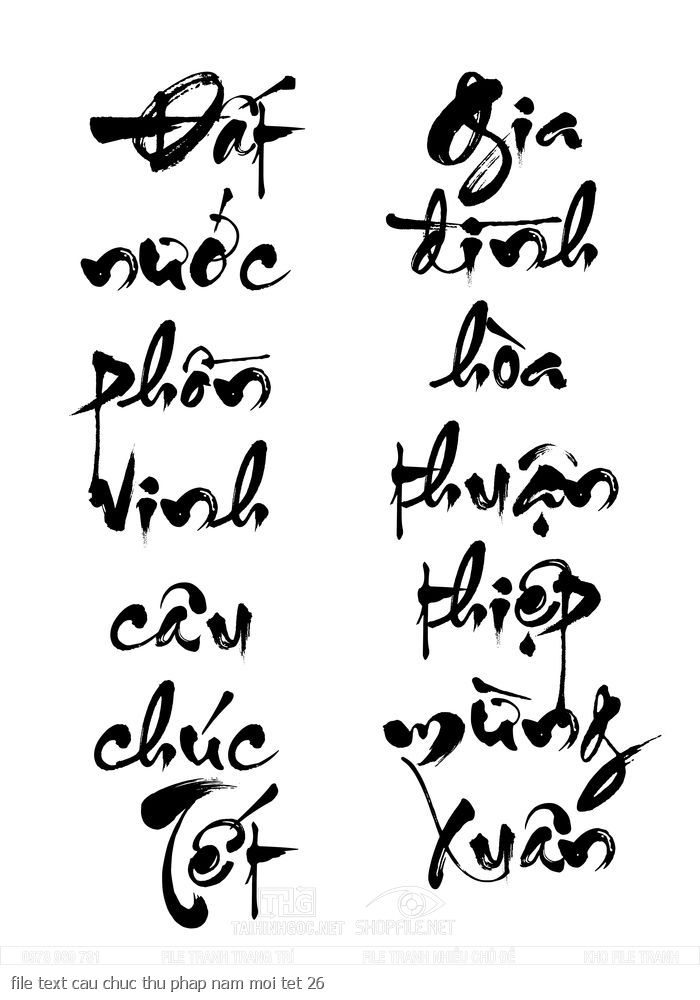 Đất
nước
phồn
Vinh
câu
chúc
Tết
Gia
đình
hòa
thuận
thiệp
mừng
Xuân
THG
TAIHINHGOC.NET SHOPFILE.NET
FILE TRANH TRANG TRÍ FILE TRANH NHIỀU CHỦ ĐỀ KHO FILE TRANH
file text cau chuc thu phap nam moi tet 26